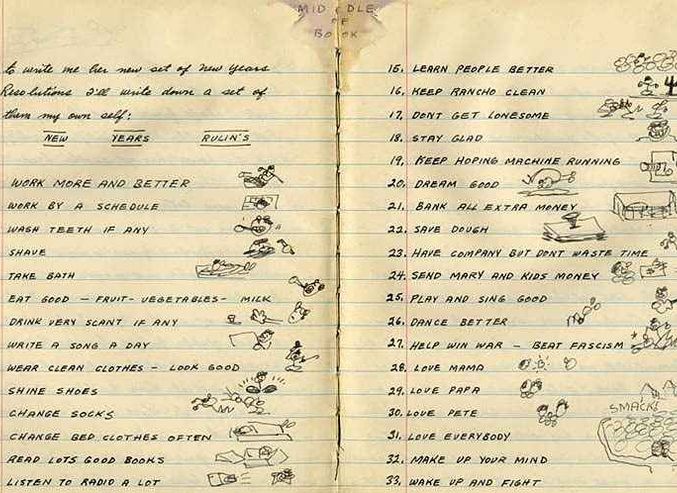 MIDDLE
OF
BOOK
to write me her new set of New Years
Resolutions I'll write down a set of
them my own self:
NEW YEARS RULIN'S
WORK MORE AND BETTER
WORK BY A SCHEDULE
WASH TEETH IF ANY
SHAVE
TAKE BATH
EAT GOOD - FRUIT - VEGETABLES - MILK
DRINK VERY SCANT IF ANY
WRITE A SONG A DAY
WEAR CLEAN CLOTHES - LOOK GOOD
SHINE SHOES
CHANGE SOCKS
CHANGE BED CLOTHES OFTEN
READ LOTS GOOD BOOKS
LISTEN TO RADIO A LOT
15. LEARN PEOPLE BETTER
16. KEEP RANCHO CLEAN
17. DONT GET LONESOME
18. STAY GLAD
19. KEEP HOPING MACHINE RUNNING
20. DREAM GOOD
21. BANK ALL EXTRA MONEY
22. SAVE DOUGH
23. HAVE COMPANY BUT DONT WASTE TIME
24. SEND MARY AND KIDS MONEY
25. PLAY AND SING GOOD
26. DANCE BETTER
27. HELP WIN WAR - BEAT FASCISM
28. LOVE MAMA
29. LOVE PAPA
30. LOVE PETE
SMACK!
31. LOVE EVERYBODY
32. MAKE UP YOUR MIND
33. WAKE UP AND FIGHT